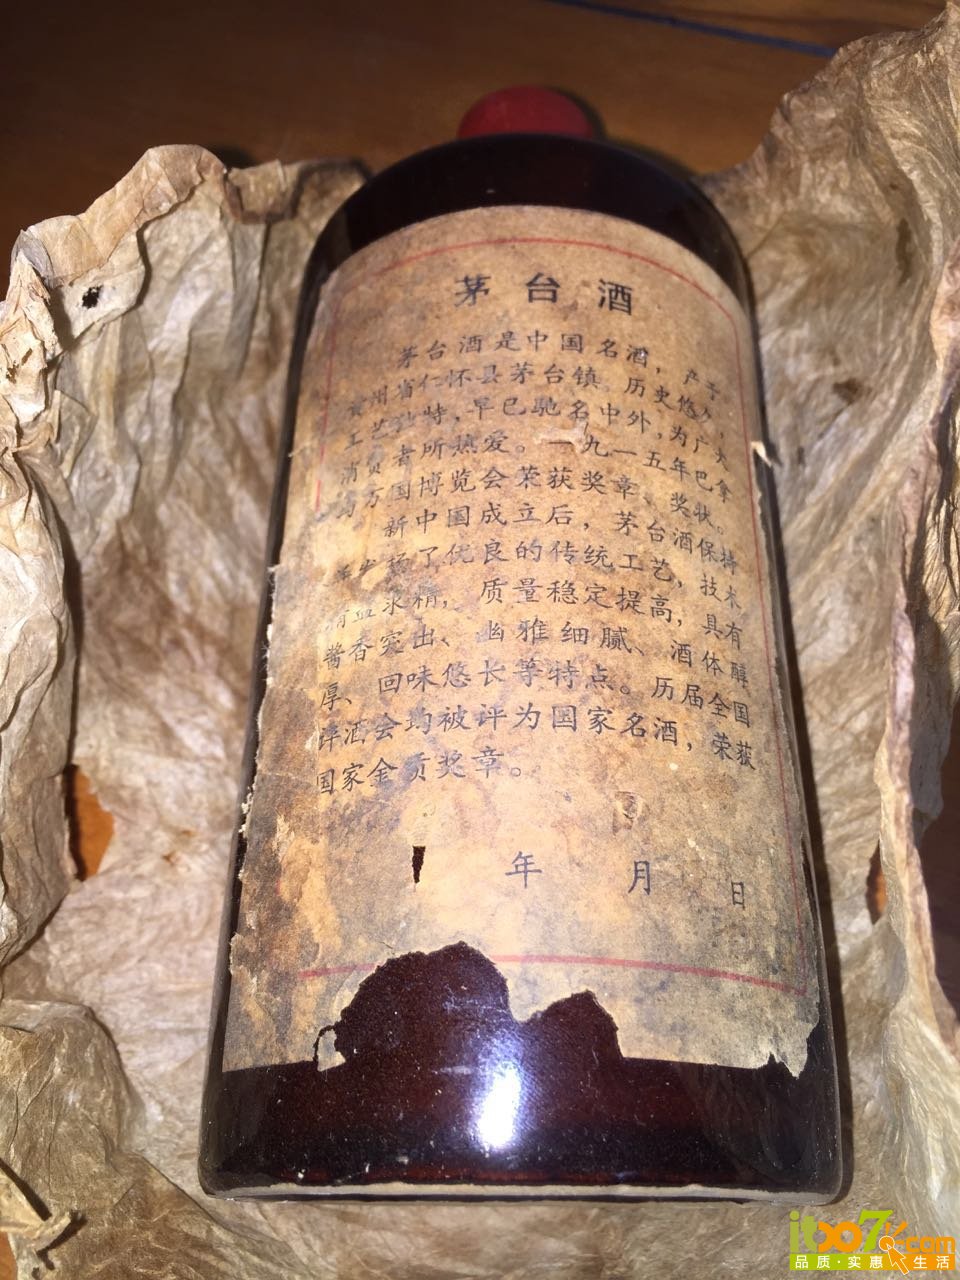 茅台酒
茅台酒是中国名酒，产于
贵州省仁怀县茅台镇。历史悠久，
工艺独特，早已驰名中外，为广大
消费者所热爱。一九一五年巴拿
马万国博览会荣获奖章、奖状。
新中国成立后，茅台酒保持
发扬了优良的传统工艺，技术
精益求精，质量稳定提高，具有
酱香突出、幽雅细腻、酒体醇
厚、回味悠长等特点。历届全国
评酒会均被评为国家名酒，荣获
国家金质奖章。
年 月 日
itoo7.com
品质·实惠 生活